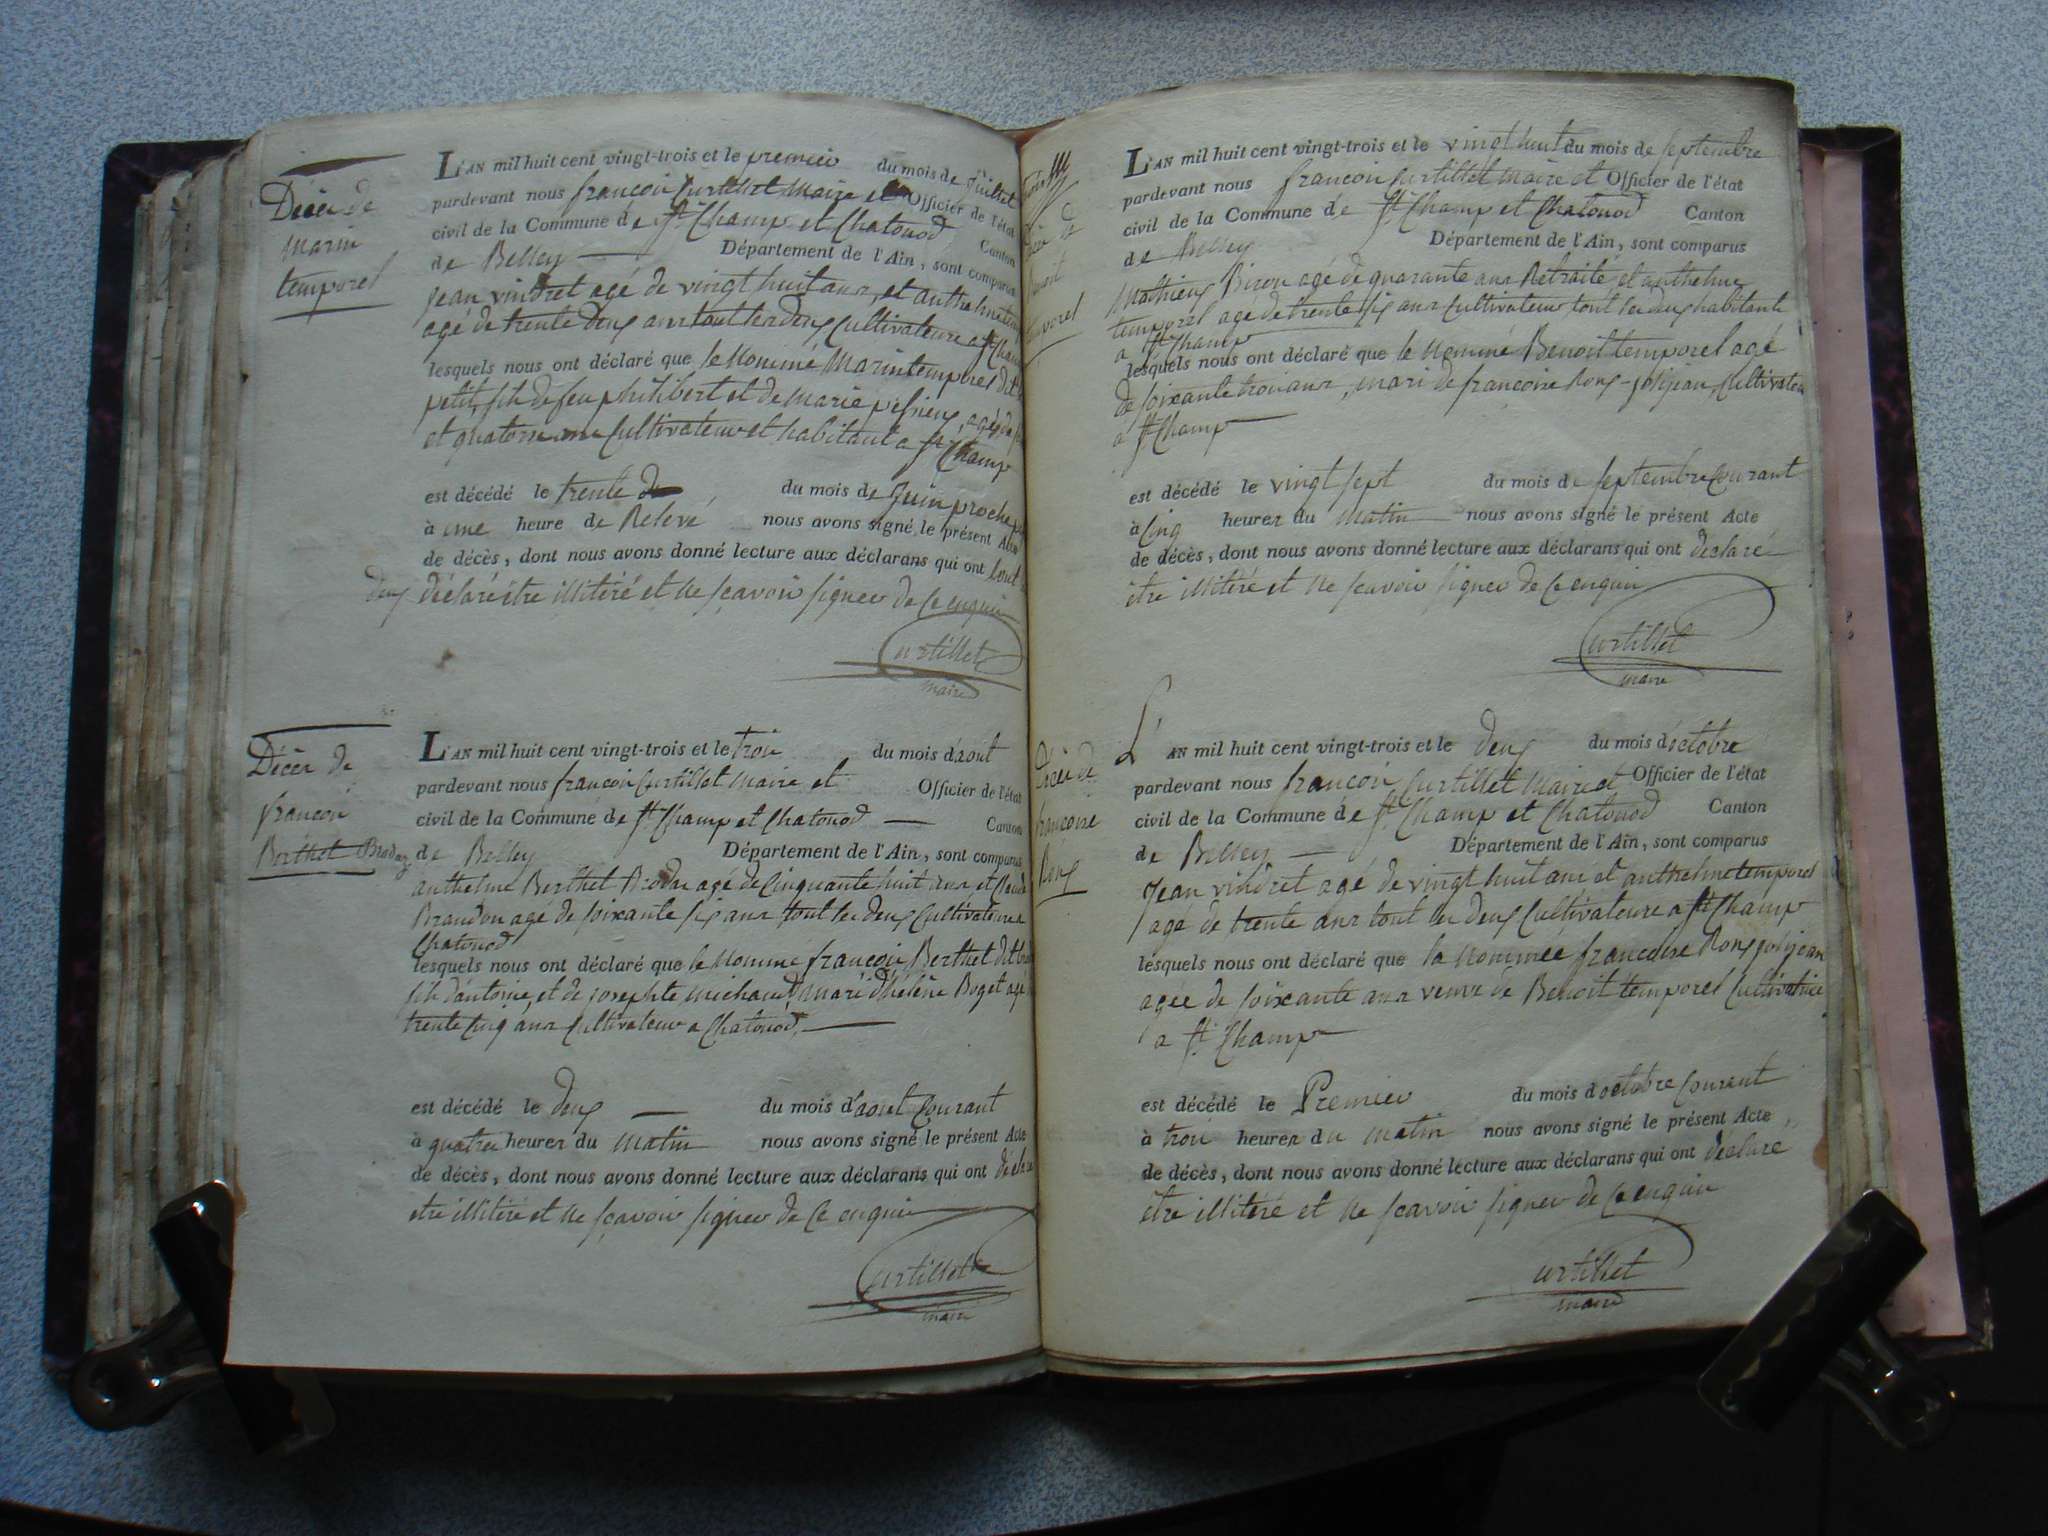 Décès de
marin
temporel
L'AN mil huit cent vingt-trois et le premier du mois de Juillet
pardevant nous françois Curtillet Maire et Officier de l'état
civil de la Commune de St Champ et Chatonod Canton
de Belley Département de l'Ain, sont comparus
Jean vindret agé de vingt huit ans, et anthelme
agé de trente deux ans tout les deux Cultivateurs a St Champ
lesquels nous ont déclaré que le Nommé Marin temporel dit
petit, fils de feu philibert et de Marie agé de
et quatorse ans Cultivateur et habitant a St Champ
est décédé le trente du mois de Juin proche
à une heure de Relevé nous avons signé le présent Acte
de décès, dont nous avons donné lecture aux déclarans qui ont tout
deux déclaré être illitéré et ne sçavoir signer de Ce enquis
Curtillet
maire
Décès de
françois
Berthet Brodaz
L'AN mil huit cent vingt-trois et le trois du mois d'aout
pardevant nous françois Curtillet Maire et Officier de l'état
civil de la Commune de St Champ et Chatonod Canton
de Belley Département de l'Ain, sont comparus
anthelme Berthet agé de Cinquante huit ans et
agé de soixante six ans tout les deux Cultivateurs a
Chatonod
lesquels nous ont déclaré que le Nommé françois Berthet dit
fils d'antoine, et de josephte michaud, mari d'hélène Boget agé
trente Cinq ans Cultivateur a Chatonod,
est décédé le deux du mois d'aout Courant
à quatre heures du matin nous avons signé le présent Acte
de décès, dont nous avons donné lecture aux déclarans qui ont déclaré
etre illitéré et ne sçavoir signer de Ce enquis
Curtillet
maire
L'AN mil huit cent vingt-trois et le vingt huit du mois de septembre
pardevant nous françois Curtillet Maire et Officier de l'état
civil de la Commune de St Champ et Chatonod Canton
de Belley Département de l'Ain, sont comparus
Mathieu agé de quarante ans Retraité et anthelme
temporel agé de trente six ans Cultivateur tout les deux habitant
a St Champ
lesquels nous ont déclaré que le Nommé Benoit temporel agé
de soixante trois ans, mari de francoise Rong-jolijean, Cultivateur
a St Champ
est décédé le vingt sept du mois de septembre Courant
à Cinq heures du matin nous avons signé le présent Acte
de décès, dont nous avons donné lecture aux déclarans qui ont déclaré
etre illitéré et ne sçavoir signer de Ce enquis
Curtillet
maire
Décès de
francoise
Rong
L'AN mil huit cent vingt-trois et le deux du mois d'octobre
pardevant nous françois Curtillet Maire et Officier de l'état
civil de la Commune de St Champ et Chatonod Canton
de Belley Département de l'Ain, sont comparus
Jean vindret agé de vingt huit ans et anthelme temporel
agé de trente ans tout les deux Cultivateurs a St Champ
lesquels nous ont déclaré que la Nommée francoise Rong jolijean
agée de soixante ans veuve de Benoit temporel Cultivatrice
a St Champ
est décédé le Premier du mois d'octobre Courant
à trois heures du matin nous avons signé le présent Acte
de décès, dont nous avons donné lecture aux déclarans qui ont déclaré
être illitéré et ne sçavoir signer de Ce enquis
Curtillet
maire